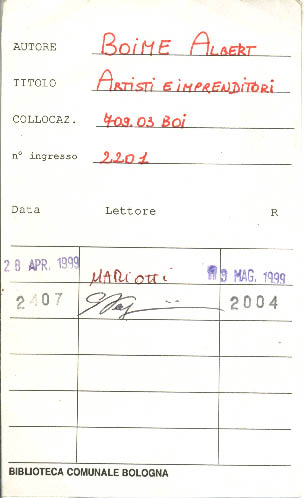 AUTORE BOIME ALBERT
TITOLO ARTISTI E IMPRENDITORI
COLLOCAZ. 709.03 BOI
n° ingresso 2201
Data Lettore R
28 APR. 1999 MARIOTTI 3 MAG. 1999
2407 2004
BIBLIOTECA COMUNALE BOLOGNA